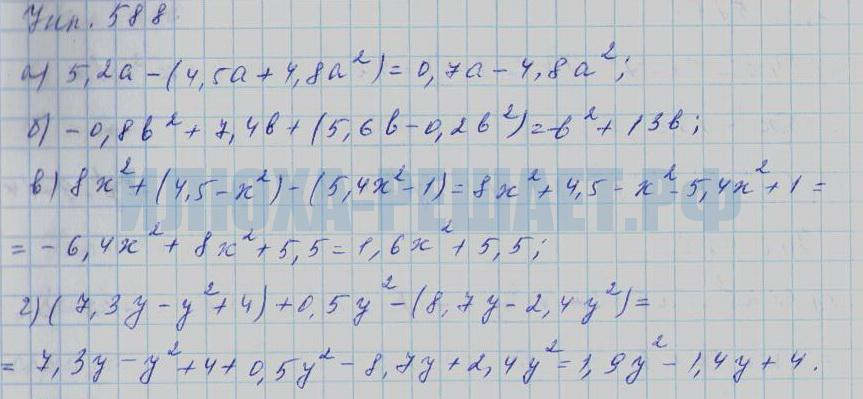 Упр. 588
а) 5,2a - (4,5a + 4,8a²) = 0,7a - 4,8a²;
б) -0,8b² + 7,4b + (5,6b - 0,2b²) = -b² + 13b;
в) 8x² + (4,5 - x²) - (5,4x² - 1) = 8x² + 4,5 - x² - 5,4x² + 1 =
ИЛЮХА-РЕШАЕТ.РФ
= -6,4x² + 8x² + 5,5 = 1,6x² + 5,5;
г) (7,3y - y² + 4) + 0,5y² - (8,7y - 2,4y²) =
= 7,3y - y² + 4 + 0,5y² - 8,7y + 2,4y² = 1,9y² - 1,4y + 4.